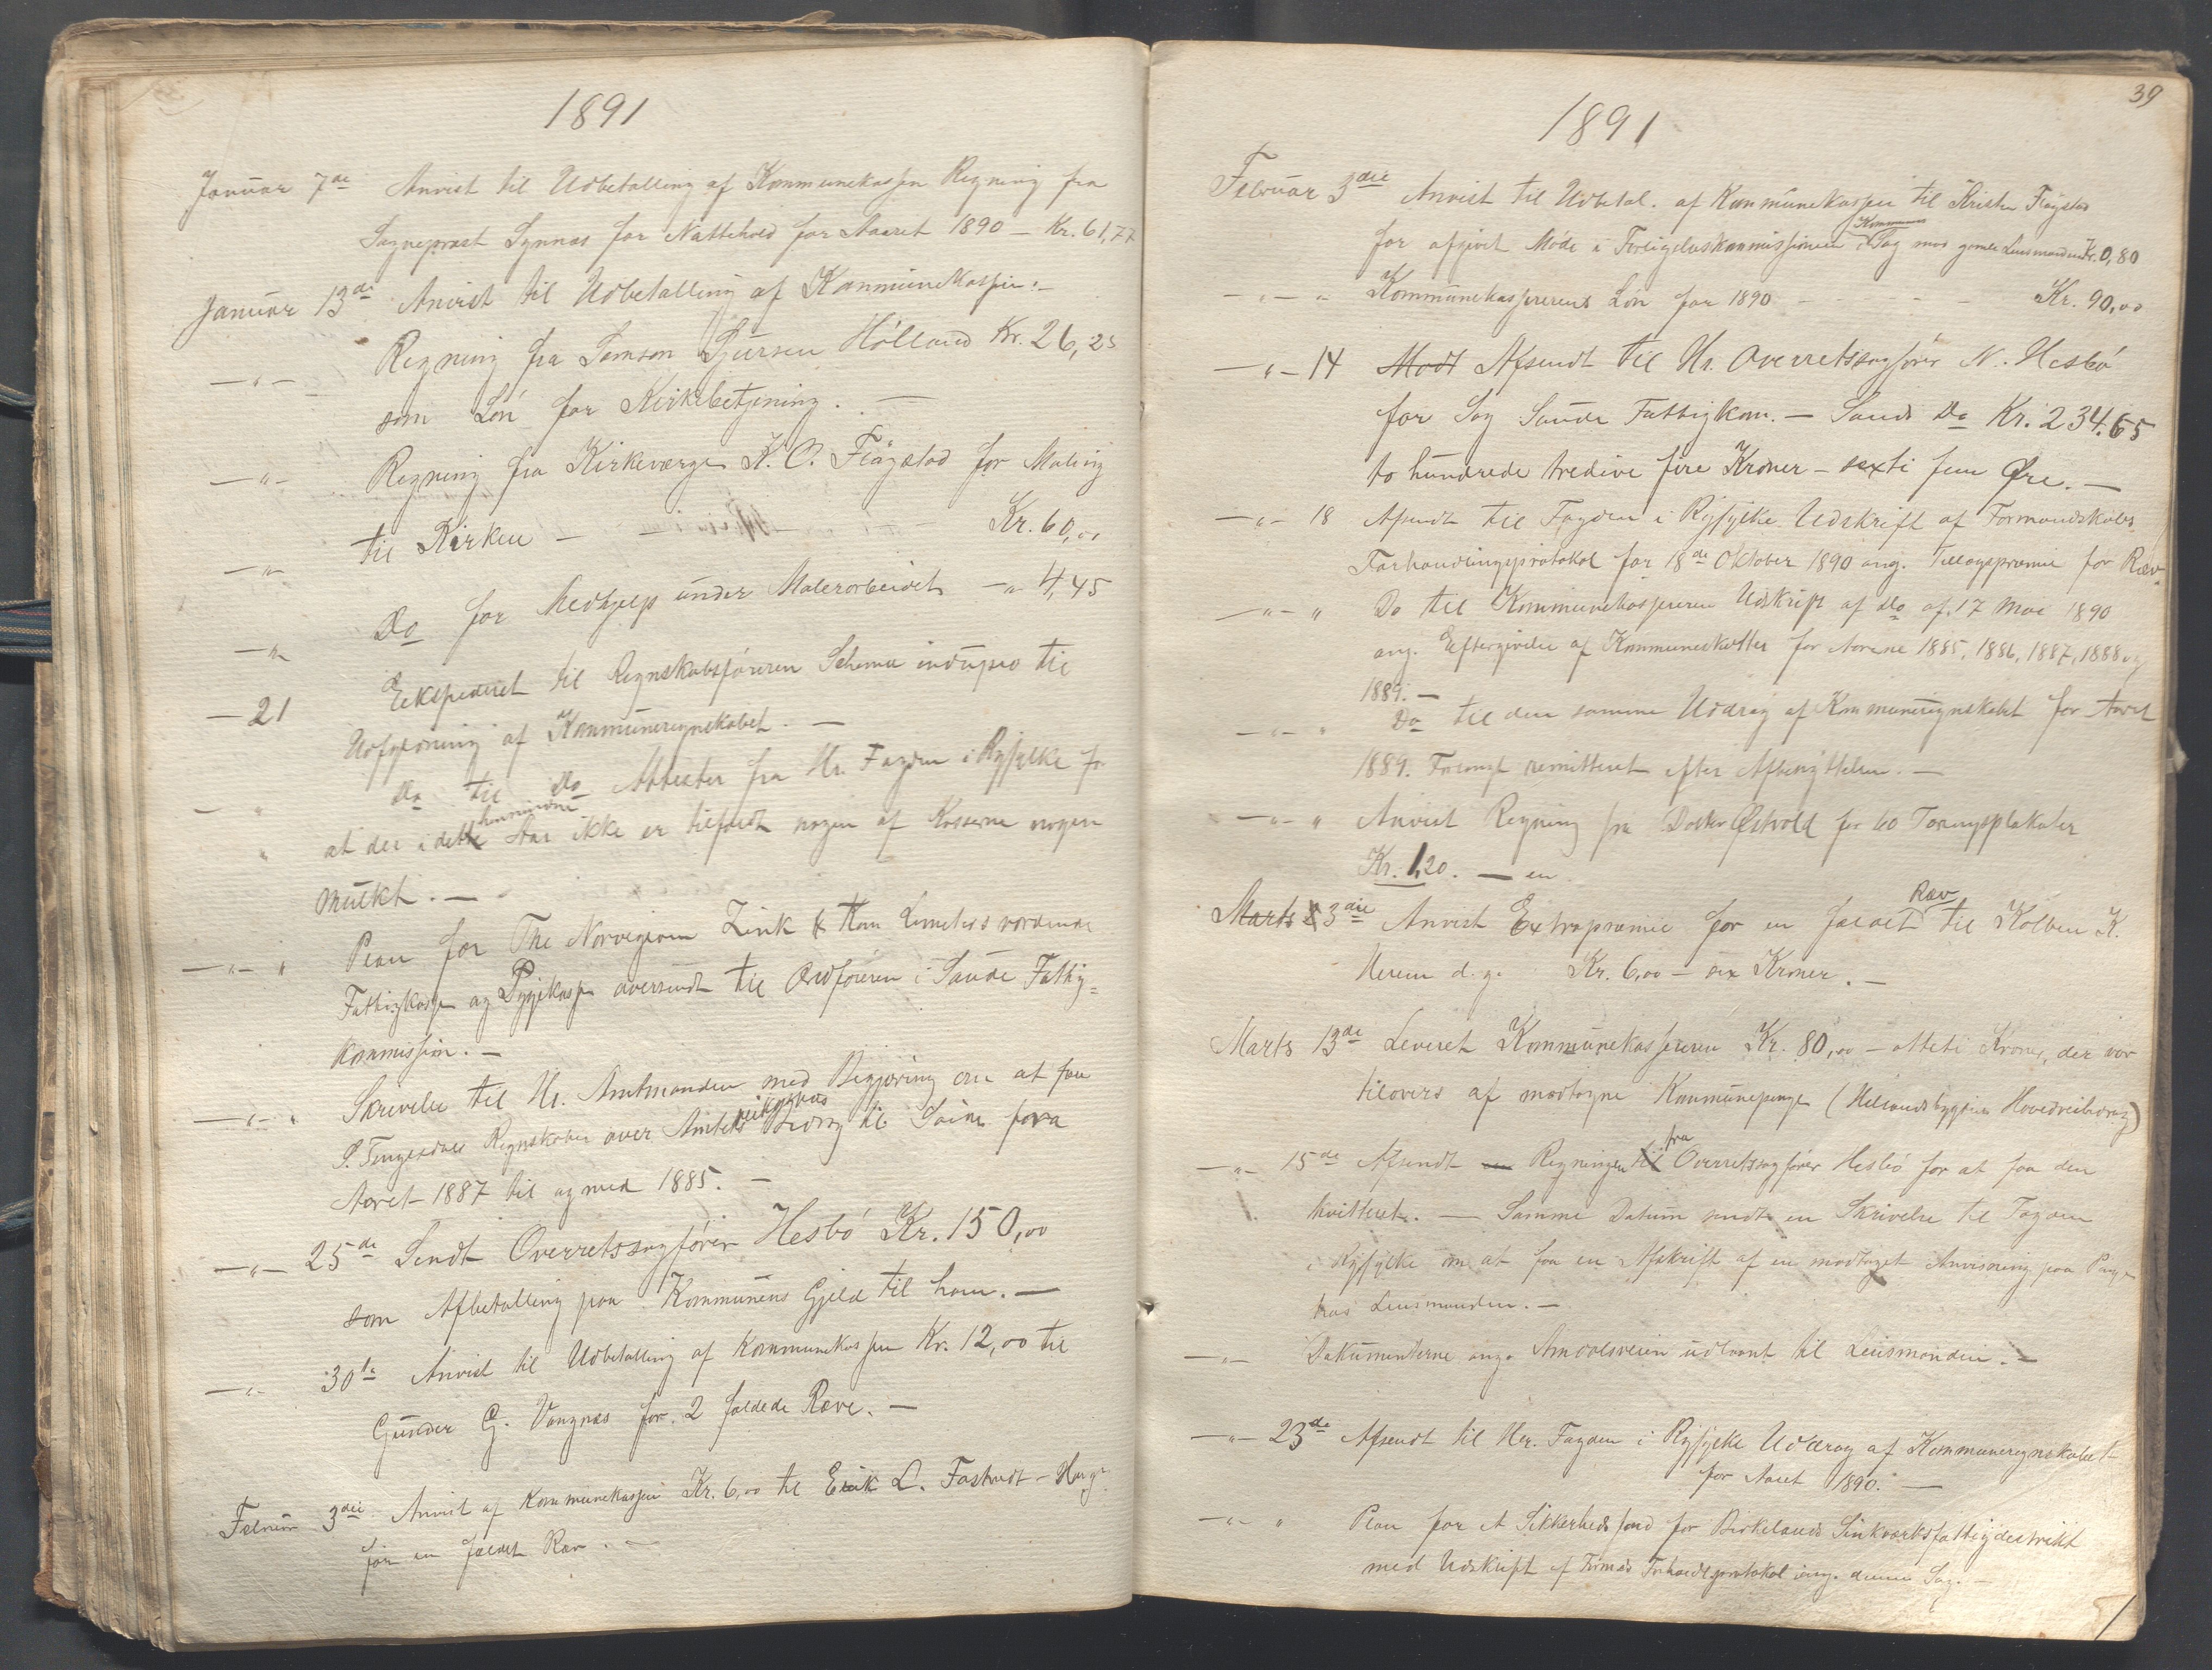 1891
Januar 7de Anvist til Udbetalling af Kommunekassen Regning fra
Sognepræst Synnæs for Nattehold for Aaret 1890 – Kr. 61,77
Januar 13de Anvist til Udbetalling af Kommunekassen:–
–"– Regning fra Samson Sjursen Hölland Kr. 26,25
som Lön for Kirkebetjening. –
–"– Regning fra Kirkeværge K. O. Fløgstad for Maling
–"– til Kirken – – Kr. 60,00
–"– Do for Medhjelp under Malerarbeidet –" 4,45
–21 Ekspederet til Regnskabsføreren Schema indbyrs til
Udfyldning af Kommuneregnskabet. –
– " Do til Do Attester fra Hr. Fogden i Ryfylke for
" at der i dette Aar ikke er tilfaldt nogen af Kasserne nogen
Mulkt. –
–"– " Plan for The Norwegian Zink & Kom Limiteds vordende
Fattigkasse og Sygekasse oversendt til Ordføreren i Saude Fattig=
kommission. –
–"– " Skrivelse til Hr. Amtmanden med Begjæring om at faa
S. Tengesdals Regnskaber over Amtets Bidrag til Saude fra
Aaret 1887 til og med 1885. –
–"– 25de Sendt Overretssagfører Hesbö Kr. 150,00
som Afbetalling paa Kommunens Gjeld til ham. –
–"– 30te Anvist til Udbetalling af Kommunekassen Kr. 12,00 til
Gunder G. Vangnæs for 2 fældede Ræve. –
Februar 3die Anvist af Kommunekassen Kr. 6,00 til Erik L.
for en fældet Ræv. –
39
1891
Februar 3die Anvist til Udbetal. af Kommunekassen til Kristen Fløgstad
Kommunens
for afgivet Möde i Forligelseskommissionen i Sag mod gamle Lensmanden Kr. 0,80
–"– " Kommunekassererens Lön for 1890 – – – – – Kr. 90,00
–"– 14 Modt Afsendt til Hr. Overretssagfører N. Hesbö
for Sag Saude Fattigkom. – Sauds Do Kr. 234.65
to hundrede tredive fire Kroner – sexti fem Øre. –
–"– 18 Afsendt til Fogden i Ryfylke Udskrift af Formandskabs
Forhandlingsprotokol for 18de Oktober 1890 ang. Tillægspræmie for Ræv.
–"– " Do til Kommunekassereren Udskrift af do af 17 Mai 1890
ang. Eftergivelse af Kommuneskatter for Aarene 1885, 1886, 1887, 1888 og
1889. –
–"– " Do til den samme Uddrag af Kommuneregnskabet for Aaret
1889. remitteret efter Afbenyttelsen. –
–"– " Anvist Regning fra Doktor Østvold for 60 Tavingsplakater
Kr. 1,20. – en
Ræv
Marts 3die Anvist Extrapræmie for en fældet til Kolben K.
Herem d. y. Kr. 6,00 – sex Kroner. –
Marts 13de Leveret Kommunekassereren Kr. 80,00 – otteti Kroner, der var
tilovers af modtagne Kommunepenge (Hellandsbygdens Hovedveibidrag)
fra
–"– 15de Afsendt en Regningen til Overretssagfører Hesbö for at faa den
kvitteret. – Samme Datum sendt en Skrivelse til Fogden
i Ryfylke om at faa en Afskrift af en modtaget Anvisning paa Penge
hos Lensmanden. –
–"– Dokumenterne ang. Amdalsveien udlaant til Lensmanden. –
–"– 23de Afsendt til Her. Fogden i Ryfylke Uddrag af Kommuneregnskabet
for Aaret 1890. –
–"– " Plan for et Sikkerhedsfond for Birkelands Sinkværksfattigdistrikt
med Udskrift af Formds Forhandlprotokol ang. denne Sag. –